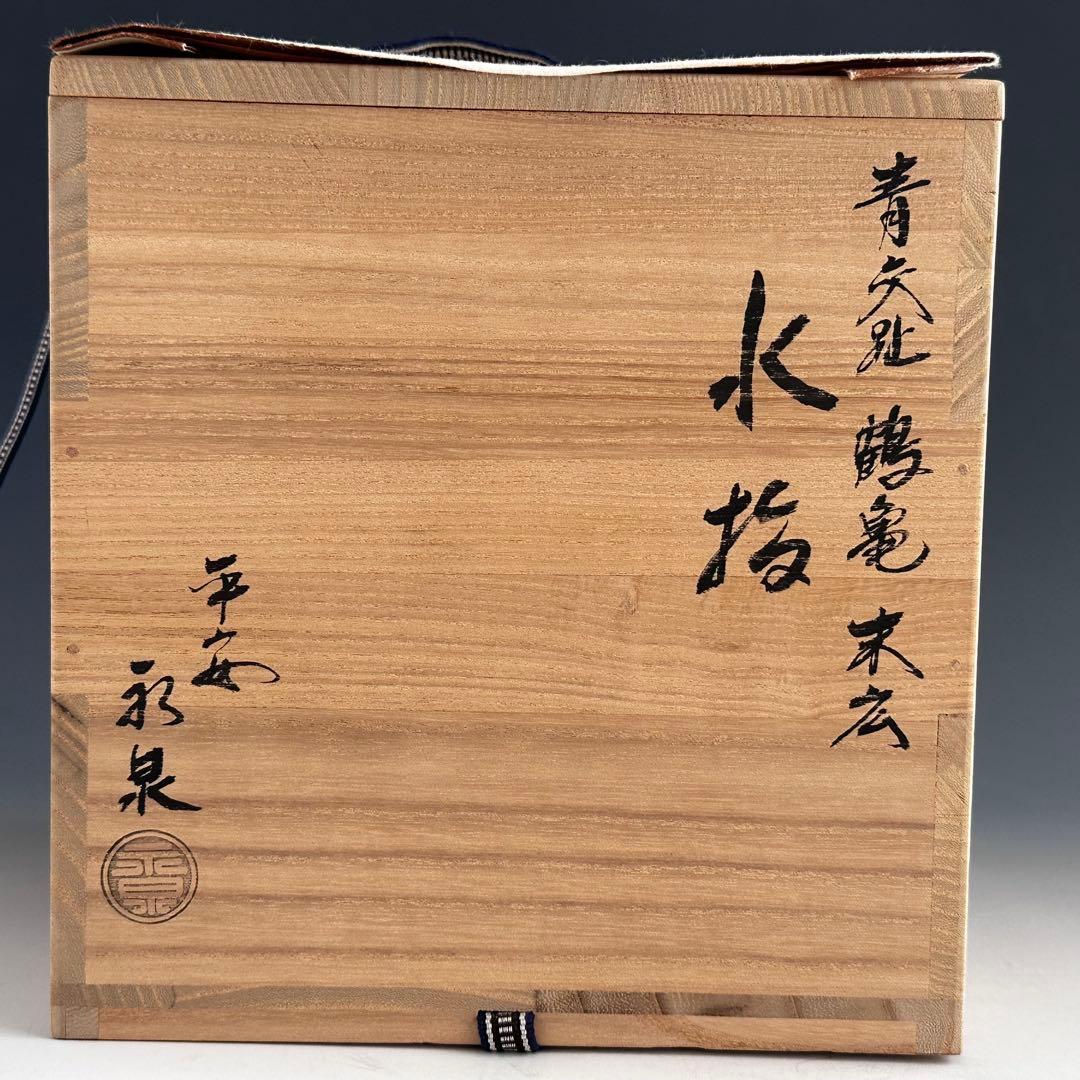 青交趾 鶴亀 末広
水指
平安
永泉